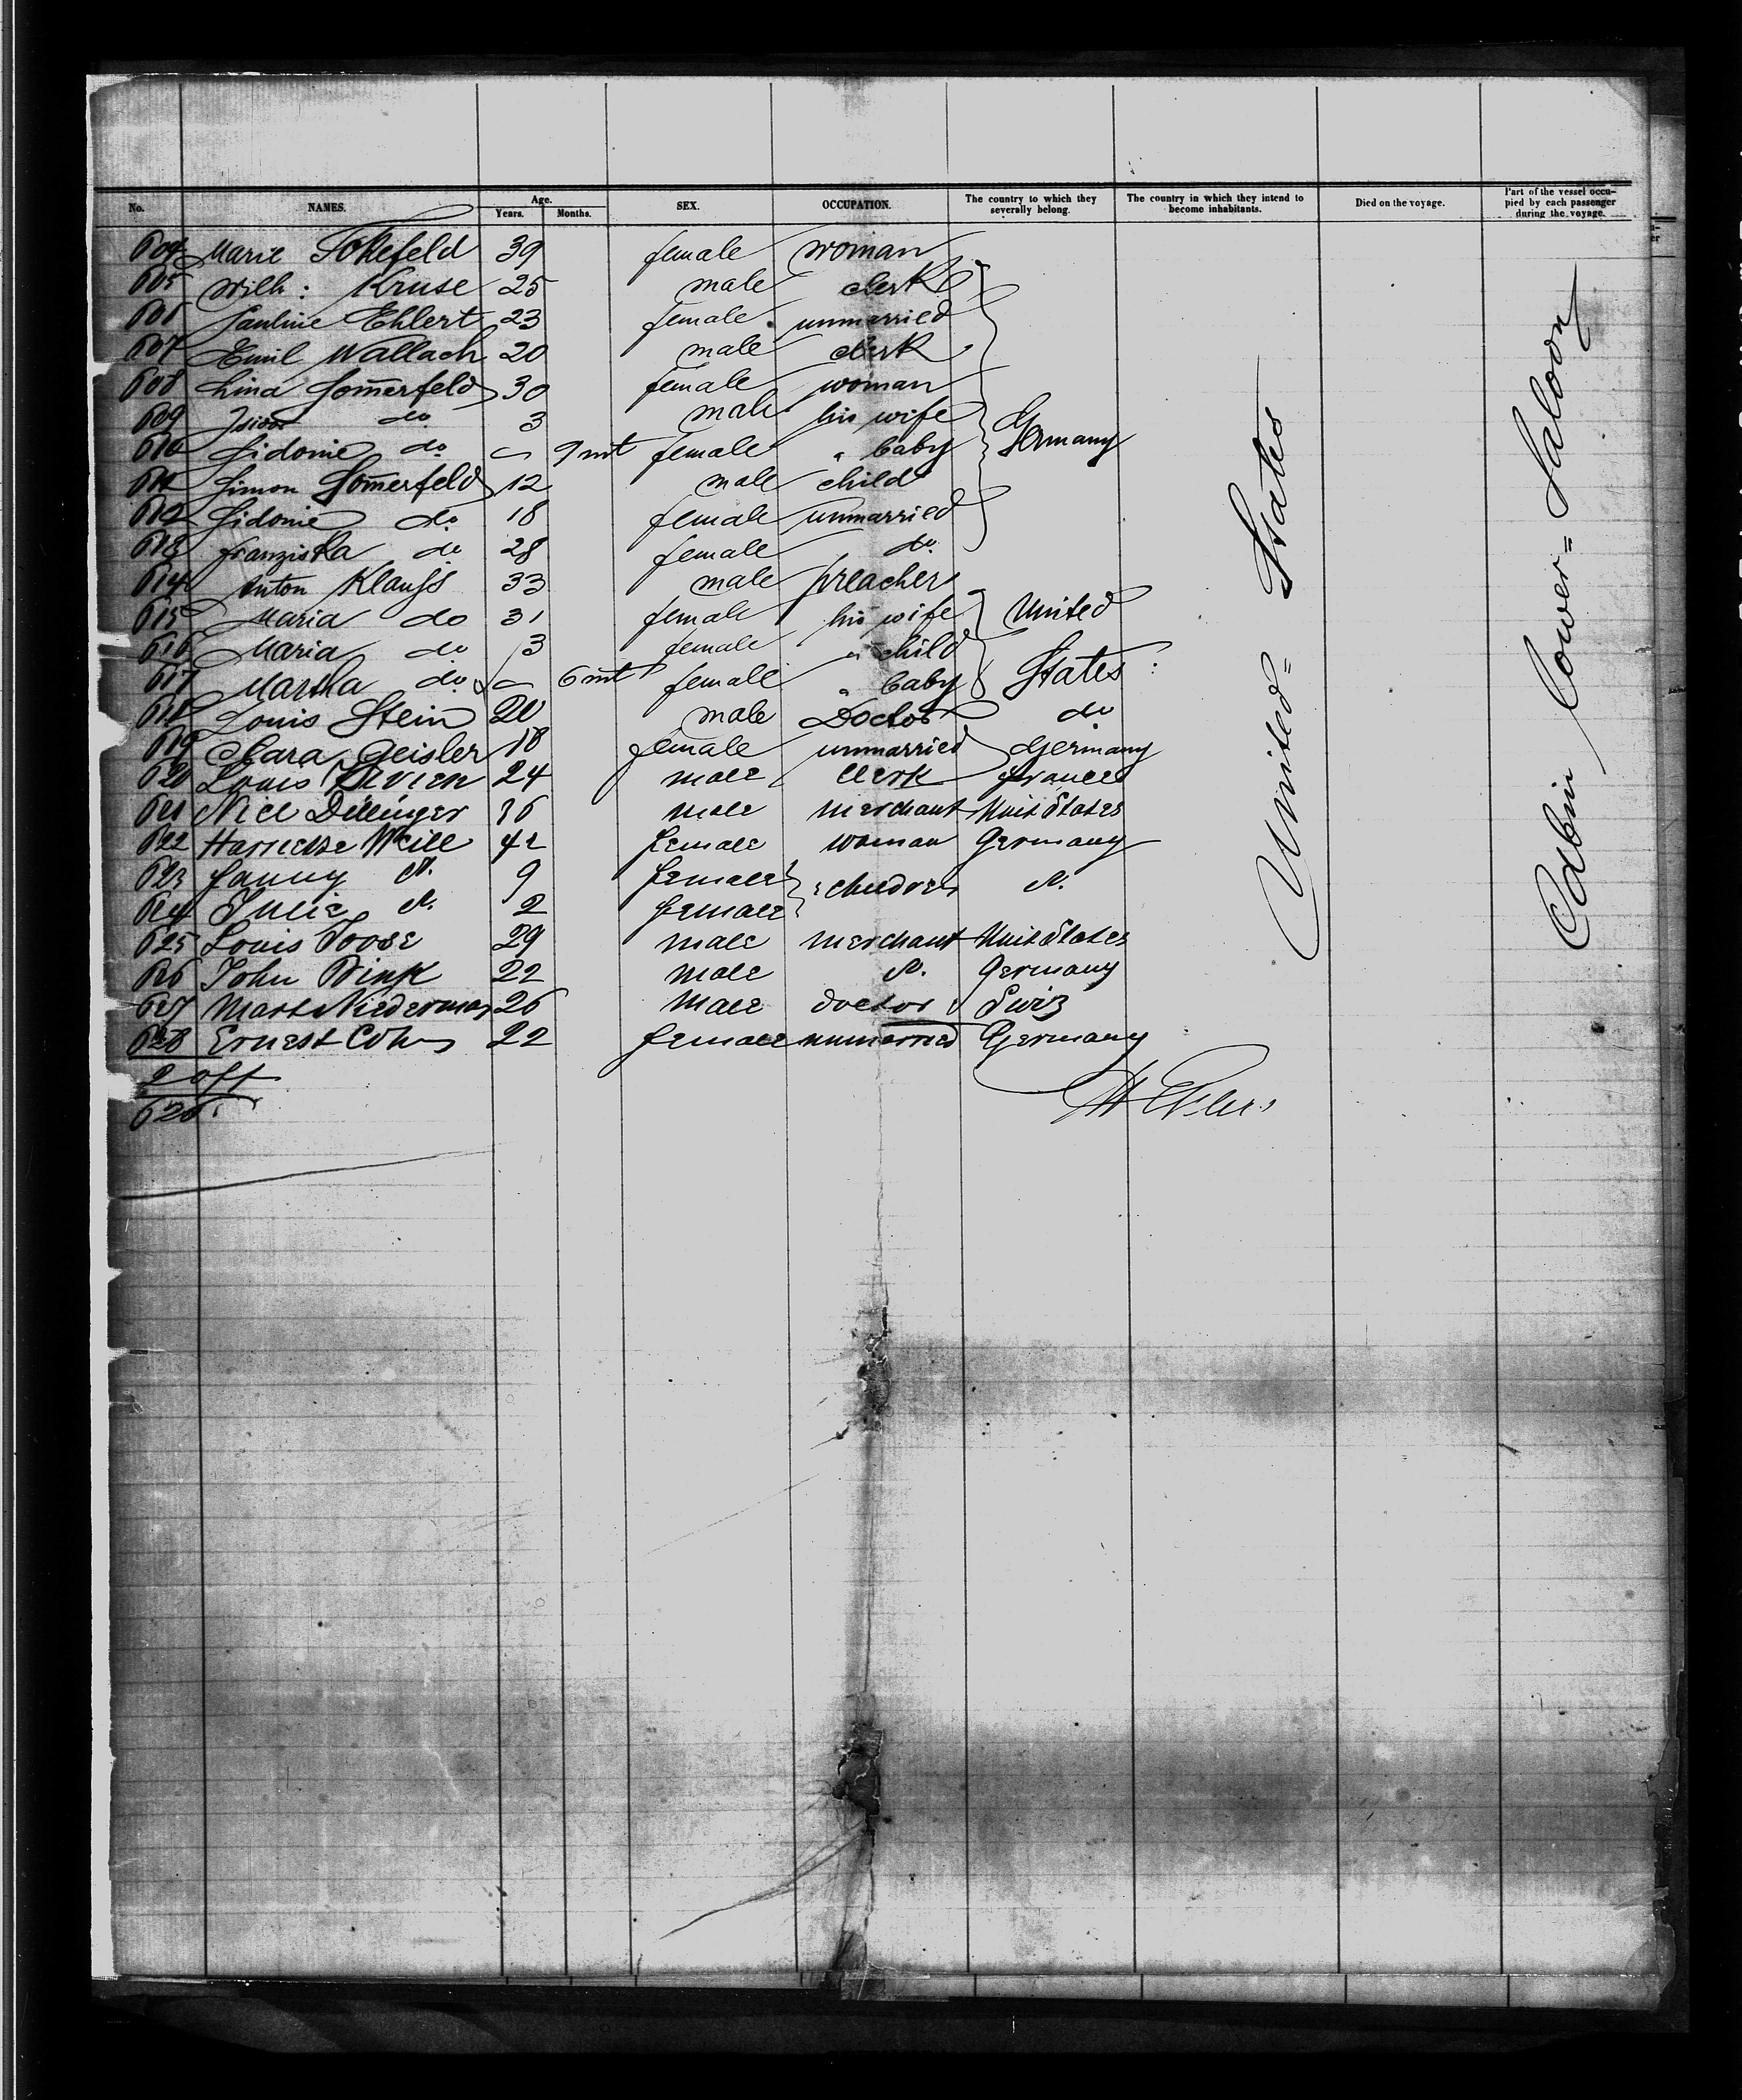 No. NAMES. Age. Years. Months. SEX. OCCUPATION. The country to which they severally belong. The country in which they intend to become inhabitants. Died on the voyage. Part of the vessel occupied by each passenger during the voyage.
604 Marie 39 female woman
605 Wilh: Kruse 25 male clerk
606 Pauline Ehlert 23 female unmarried
607 Emil Wallach 20 male clerk
608 Lina Som̄erfeld 30 female woman
609 Isidor do 3 male his wife
610 Sidonie do 9 mt female " baby Germany
611 Simon Som̄erfeld 12 male child
612 Sidonie do 18 female unmarried
613 Franziska do 28 female do
614 Anton Klauss 33 male preacher
615 Maria do 31 female his wife United
616 Maria do 3 female " child
617 Martha do 6 mt female " baby States:
618 Louis Stein 20 male Doctor do
619 Clara Geisler 18 female unmarried Germany
620 Louis 24 male clerk France
621 Dillinger 36 male merchant Unit States
622 Weill 42 female woman Germany
623 Fanny d. 9 female children d.
624 Julie d. 2 female
625 Louis Joose 29 male merchant Unit States
626 John 22 male d. Germany
627 26 male doctor Swiz
628 Ernest Cohn 22 female unmarried Germany
2 off
626
United= States
Cabin Lower= Saloon